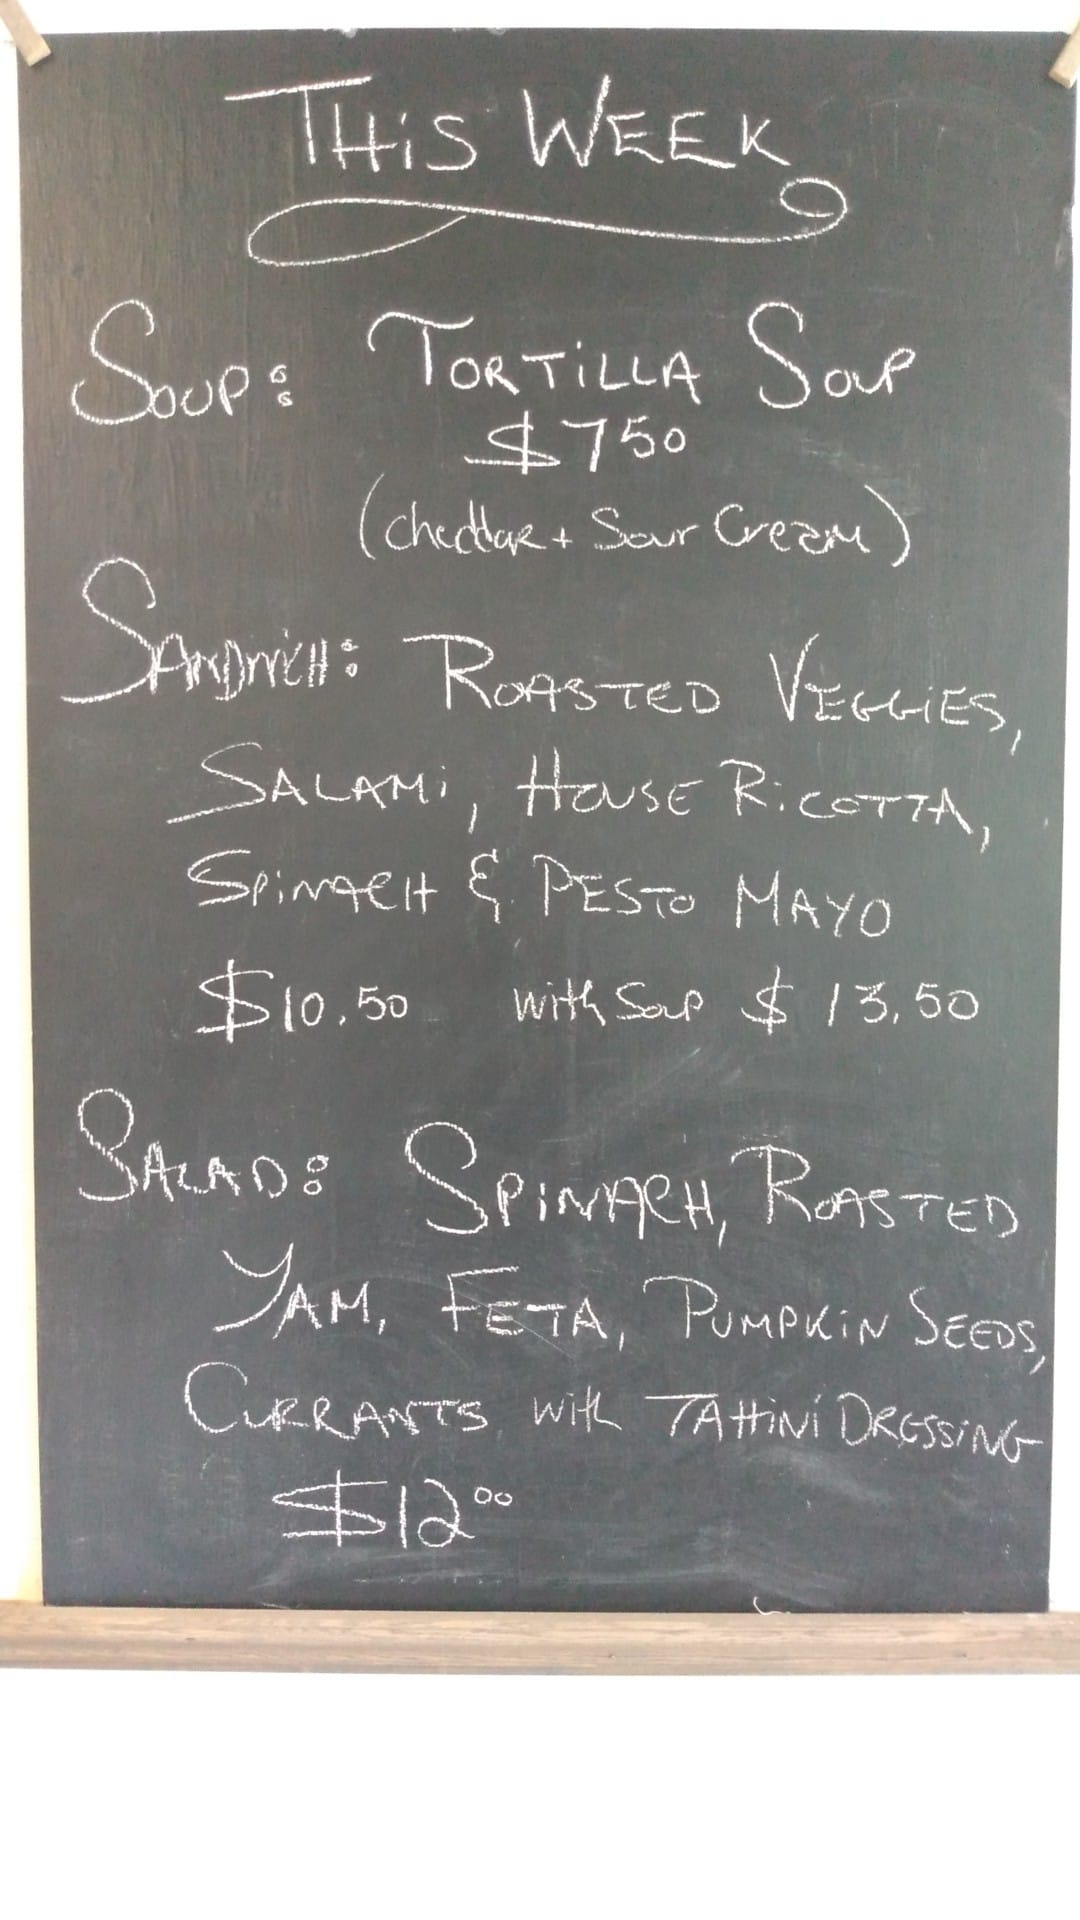 THiS WEEK
SOUP: TORTiLLA SOUP
$750
(cheddar + Sour Cream)
SANDWiCH: ROASTED VEGGiES,
SALAMi, HOUSE RiCOTTA,
SPiNACH & PESTO MAYO
$10.50 with Soup $13.50
SALAD: SPiNACH, ROASTED
YAM, FETA, PUMPKiN SEEDS,
CURRANTS with TAHiNi DRESSiNG
$12⁰⁰